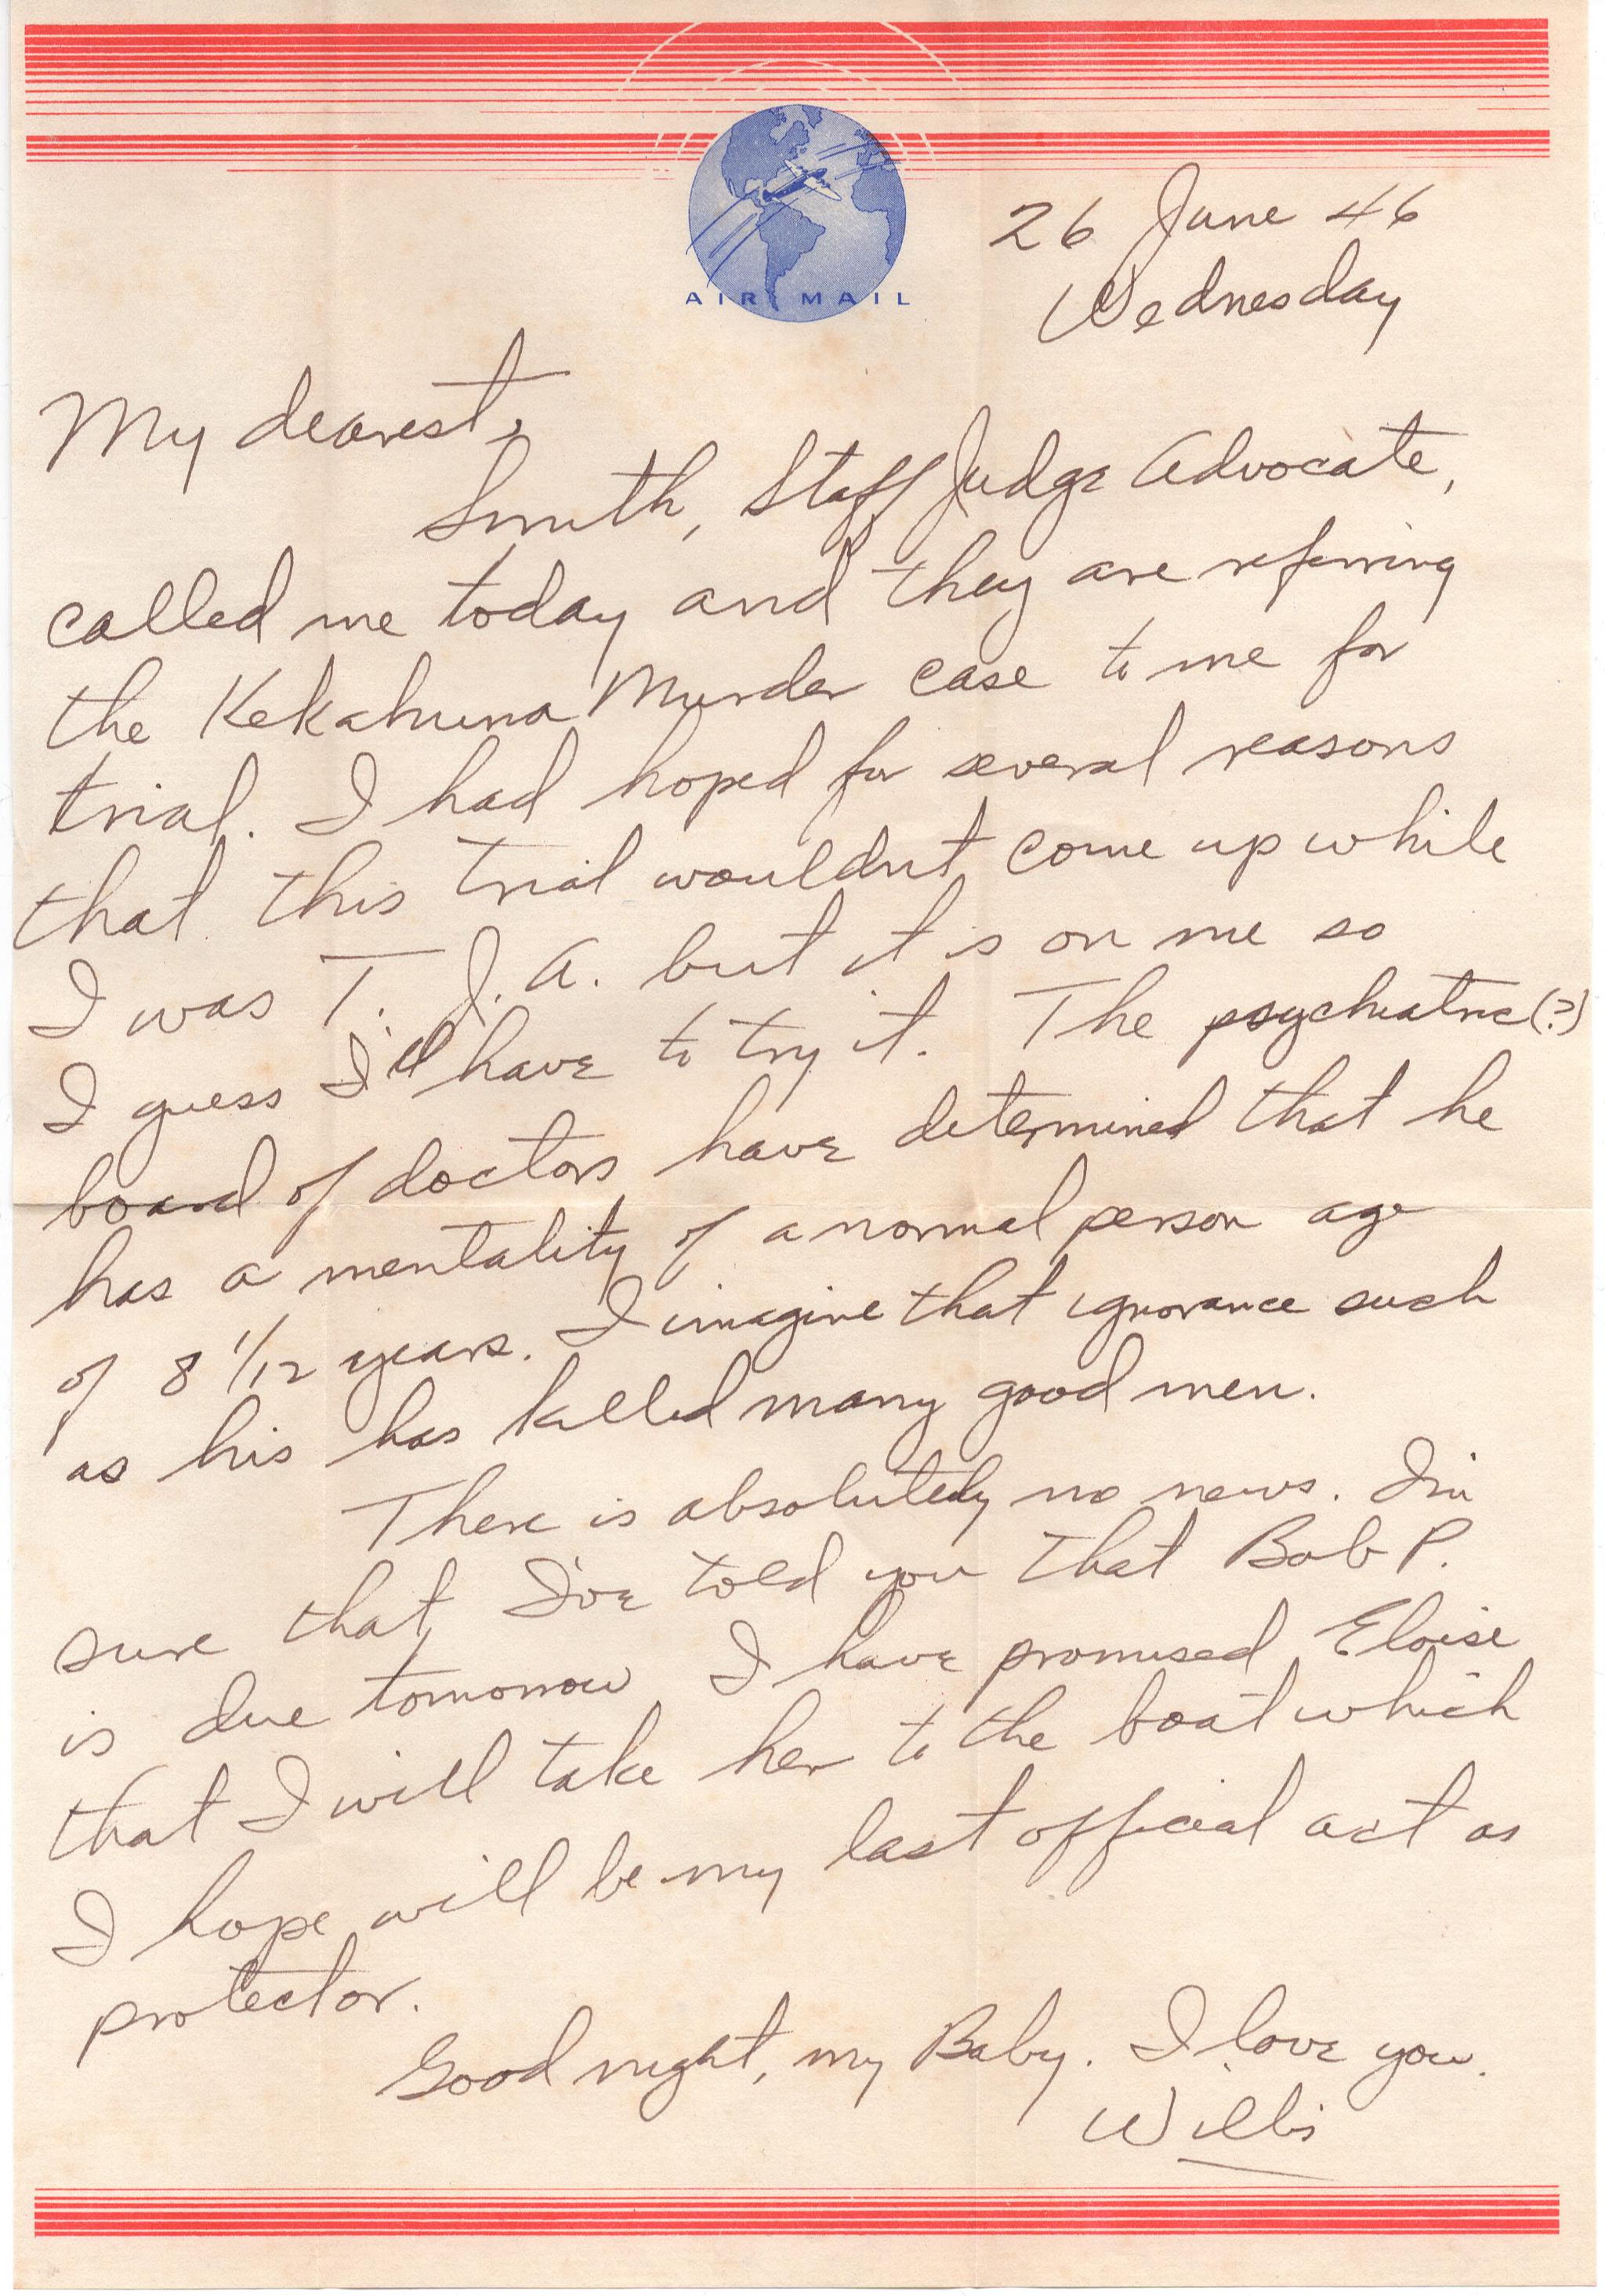 AIR MAIL
26 June 46
Wednesday
My dearest,
Smith, Staff Judge Advocate,
called me today and they are referring
the Kekahuna Murder case to me for
trial. I had hoped for several reasons
that this trial wouldn't come up while
I was T. J. A. but it is on me so
I guess I'll have to try it. The psychiatric(?)
board of doctors have determined that he
has a mentality of a normal person age
of 8 1/12 years. I imagine that ignorance such
as his has killed many good men.
There is absolutely no news. I'm
sure that I've told you that Bob P.
is due tomorrow I have promised Eloise
that I will take her to the boat which
I hope will be my last official act as
protector.
Good night, my Baby. I love you.
Willis